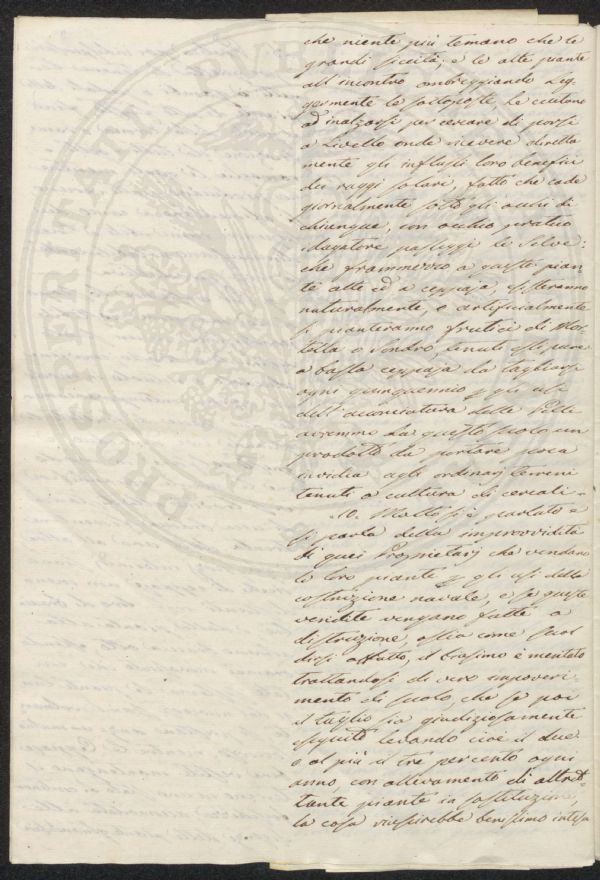 che niente più temano che le
grandi siccità; e le alte piante
all'incontro ombreggiando leg-
germente le sottoposte, le eccitano
ad inalzarsi per cercare di porsi
a livello onde ricevere diretta
mente gli influssi loro benefici
dei raggi solari, fatto che cade
giornalmente sotto gli occhi di
chiunque, con occhio pratico
passeggi le Selve:
che frammezzo a queste pian
te alte ed a ceppaja,
naturalmente, o artificialmente
si pianteranno frutici di Mor-
tella o Sondro, tenuti essi pure
a bassa ceppaja da tagliarsi
ogni quinquennio p gli usi
dell'acconciatura delle Pelli
avremmo da questo suolo un
prodotto da portare poca
invidia agli ordinarj terreni
tenuti a cultura di cereali -
10. Molto si è parlato e
si parla della improvvidità
di quei Proprietarj che vendano
le loro piante p gli usi della
costruzione navale, e se queste
vendite vengano fatte a
distruzione, ossia come suol
dirsi a tutto, il biasimo è meritato
trattandosi di vero impoveri
mento di suolo, che se poi
il taglio sia giudiziosamente
eseguito levando cioè il due
o al più il tre percento ogni
anno, con allevamento di altret
tante piante in sostituzione,
la cosa riuscirebbe benissimo intesa
PROSPERITATI PVBLICAE